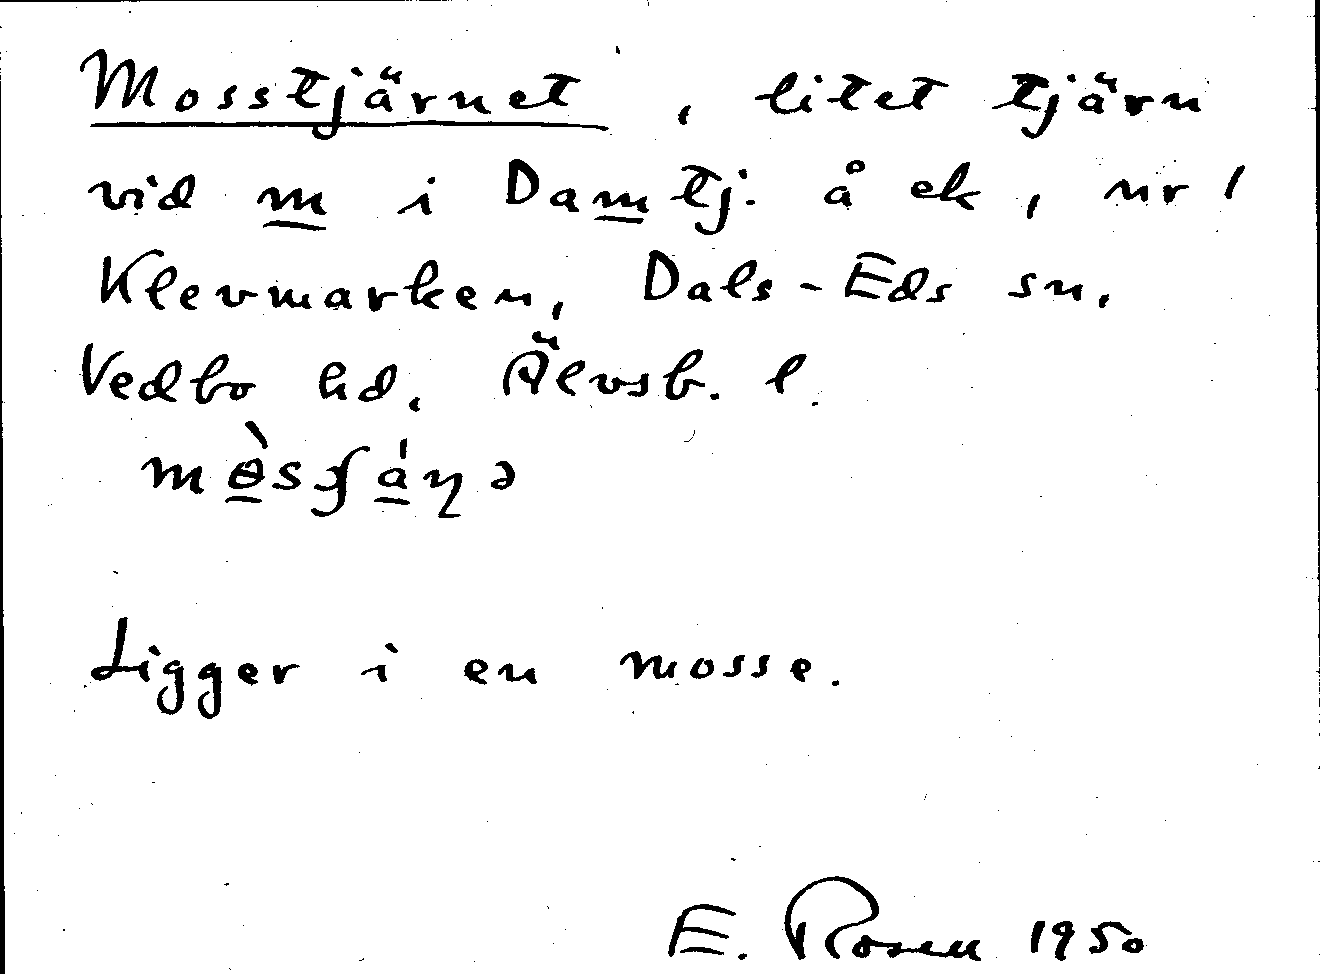 Mosstjärnet, litet tjärn
vid m i Damtj. å ek, nr 1
Klevmarken, Dals-Eds sn,
Vedbo hd, Älvsb. l.
Ligger i en mosse.
E. Rosen 1950